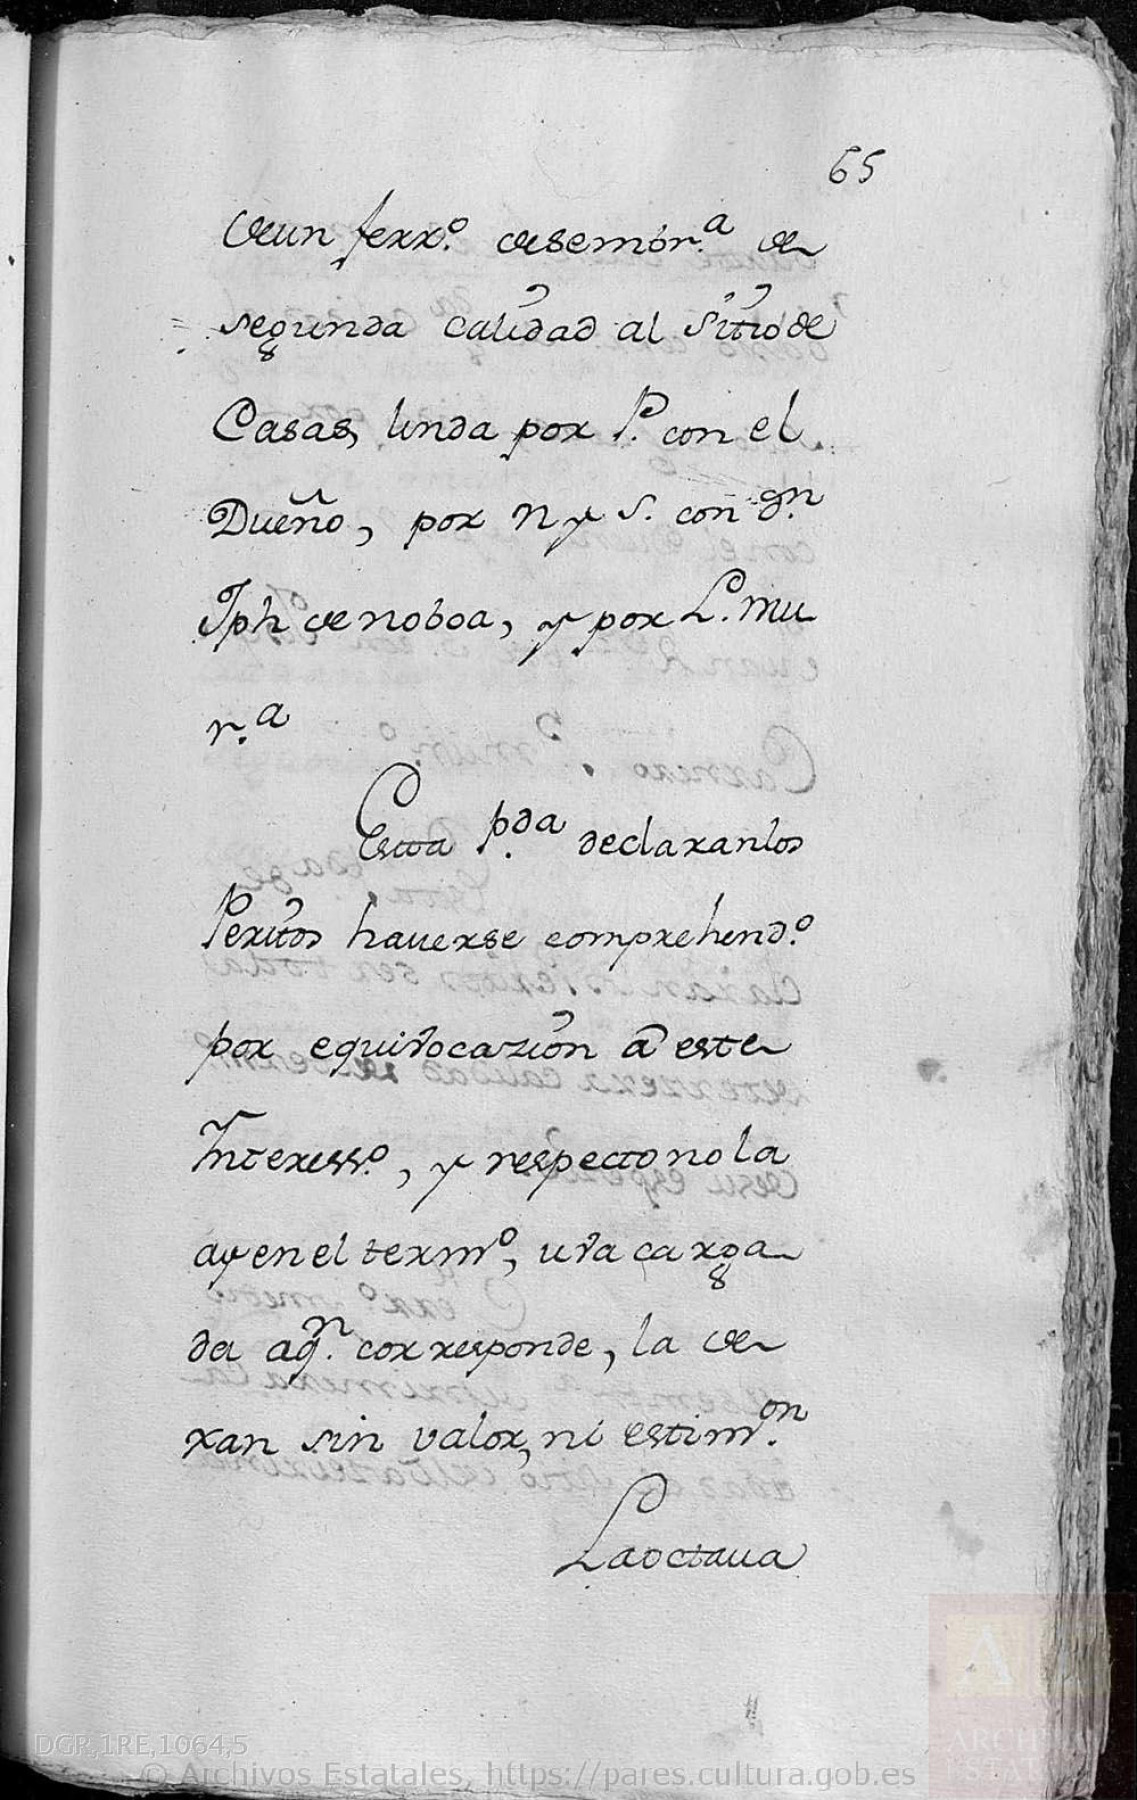 65
deun ferr.º desembr.ª de
segunda calidad al sitio de
Casas, linda por P.º con el
Dueño, por N y S. con d.n
Jph de noboa, y por L.º mu
r.a
Esta p.da declaran los
Peritos hauerse comprehend.º
por equivocazion a este
Interess.º, y respecto no la
ay en el term.º, uva carga
da aq.n corresponde, la de
xan sin valor, ni estim.on
La octaua
DGR,1RE,1064,5
© Archivos Estatales, https://pares.cultura.gob.es